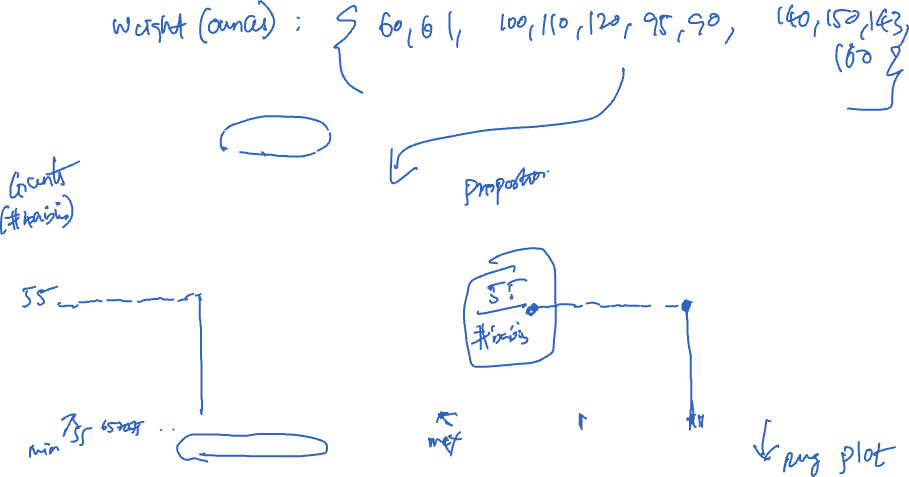 Weight (ounces) : { 60, 61, 100, 110, 120, 95, 90, 140, 150, 143,
160 }
Counts
(#babies)
Proportion
55
55
#babies
min 55 65 70 75 ..
max
rug plot